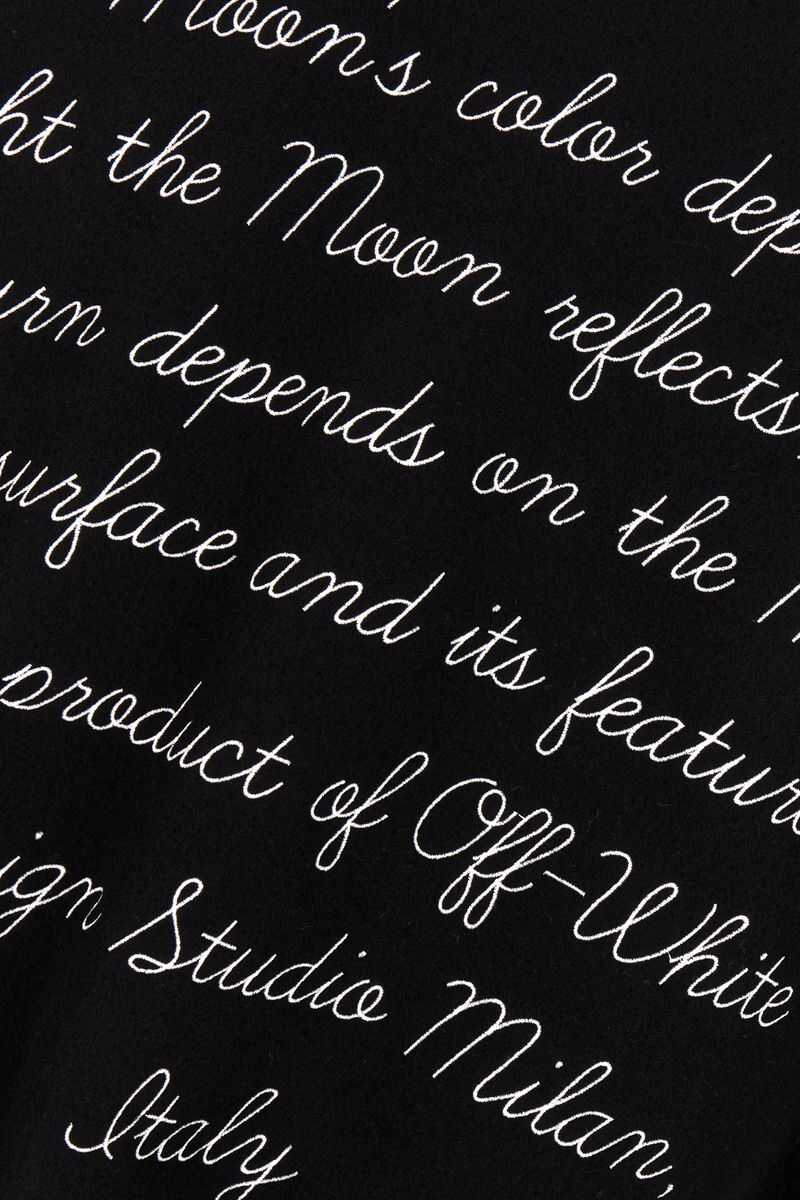 Moon's color dep
ht the Moon reflects
urn depends on the M
surface and its featur
product of Off-White
ign Studio Milan,
Italy